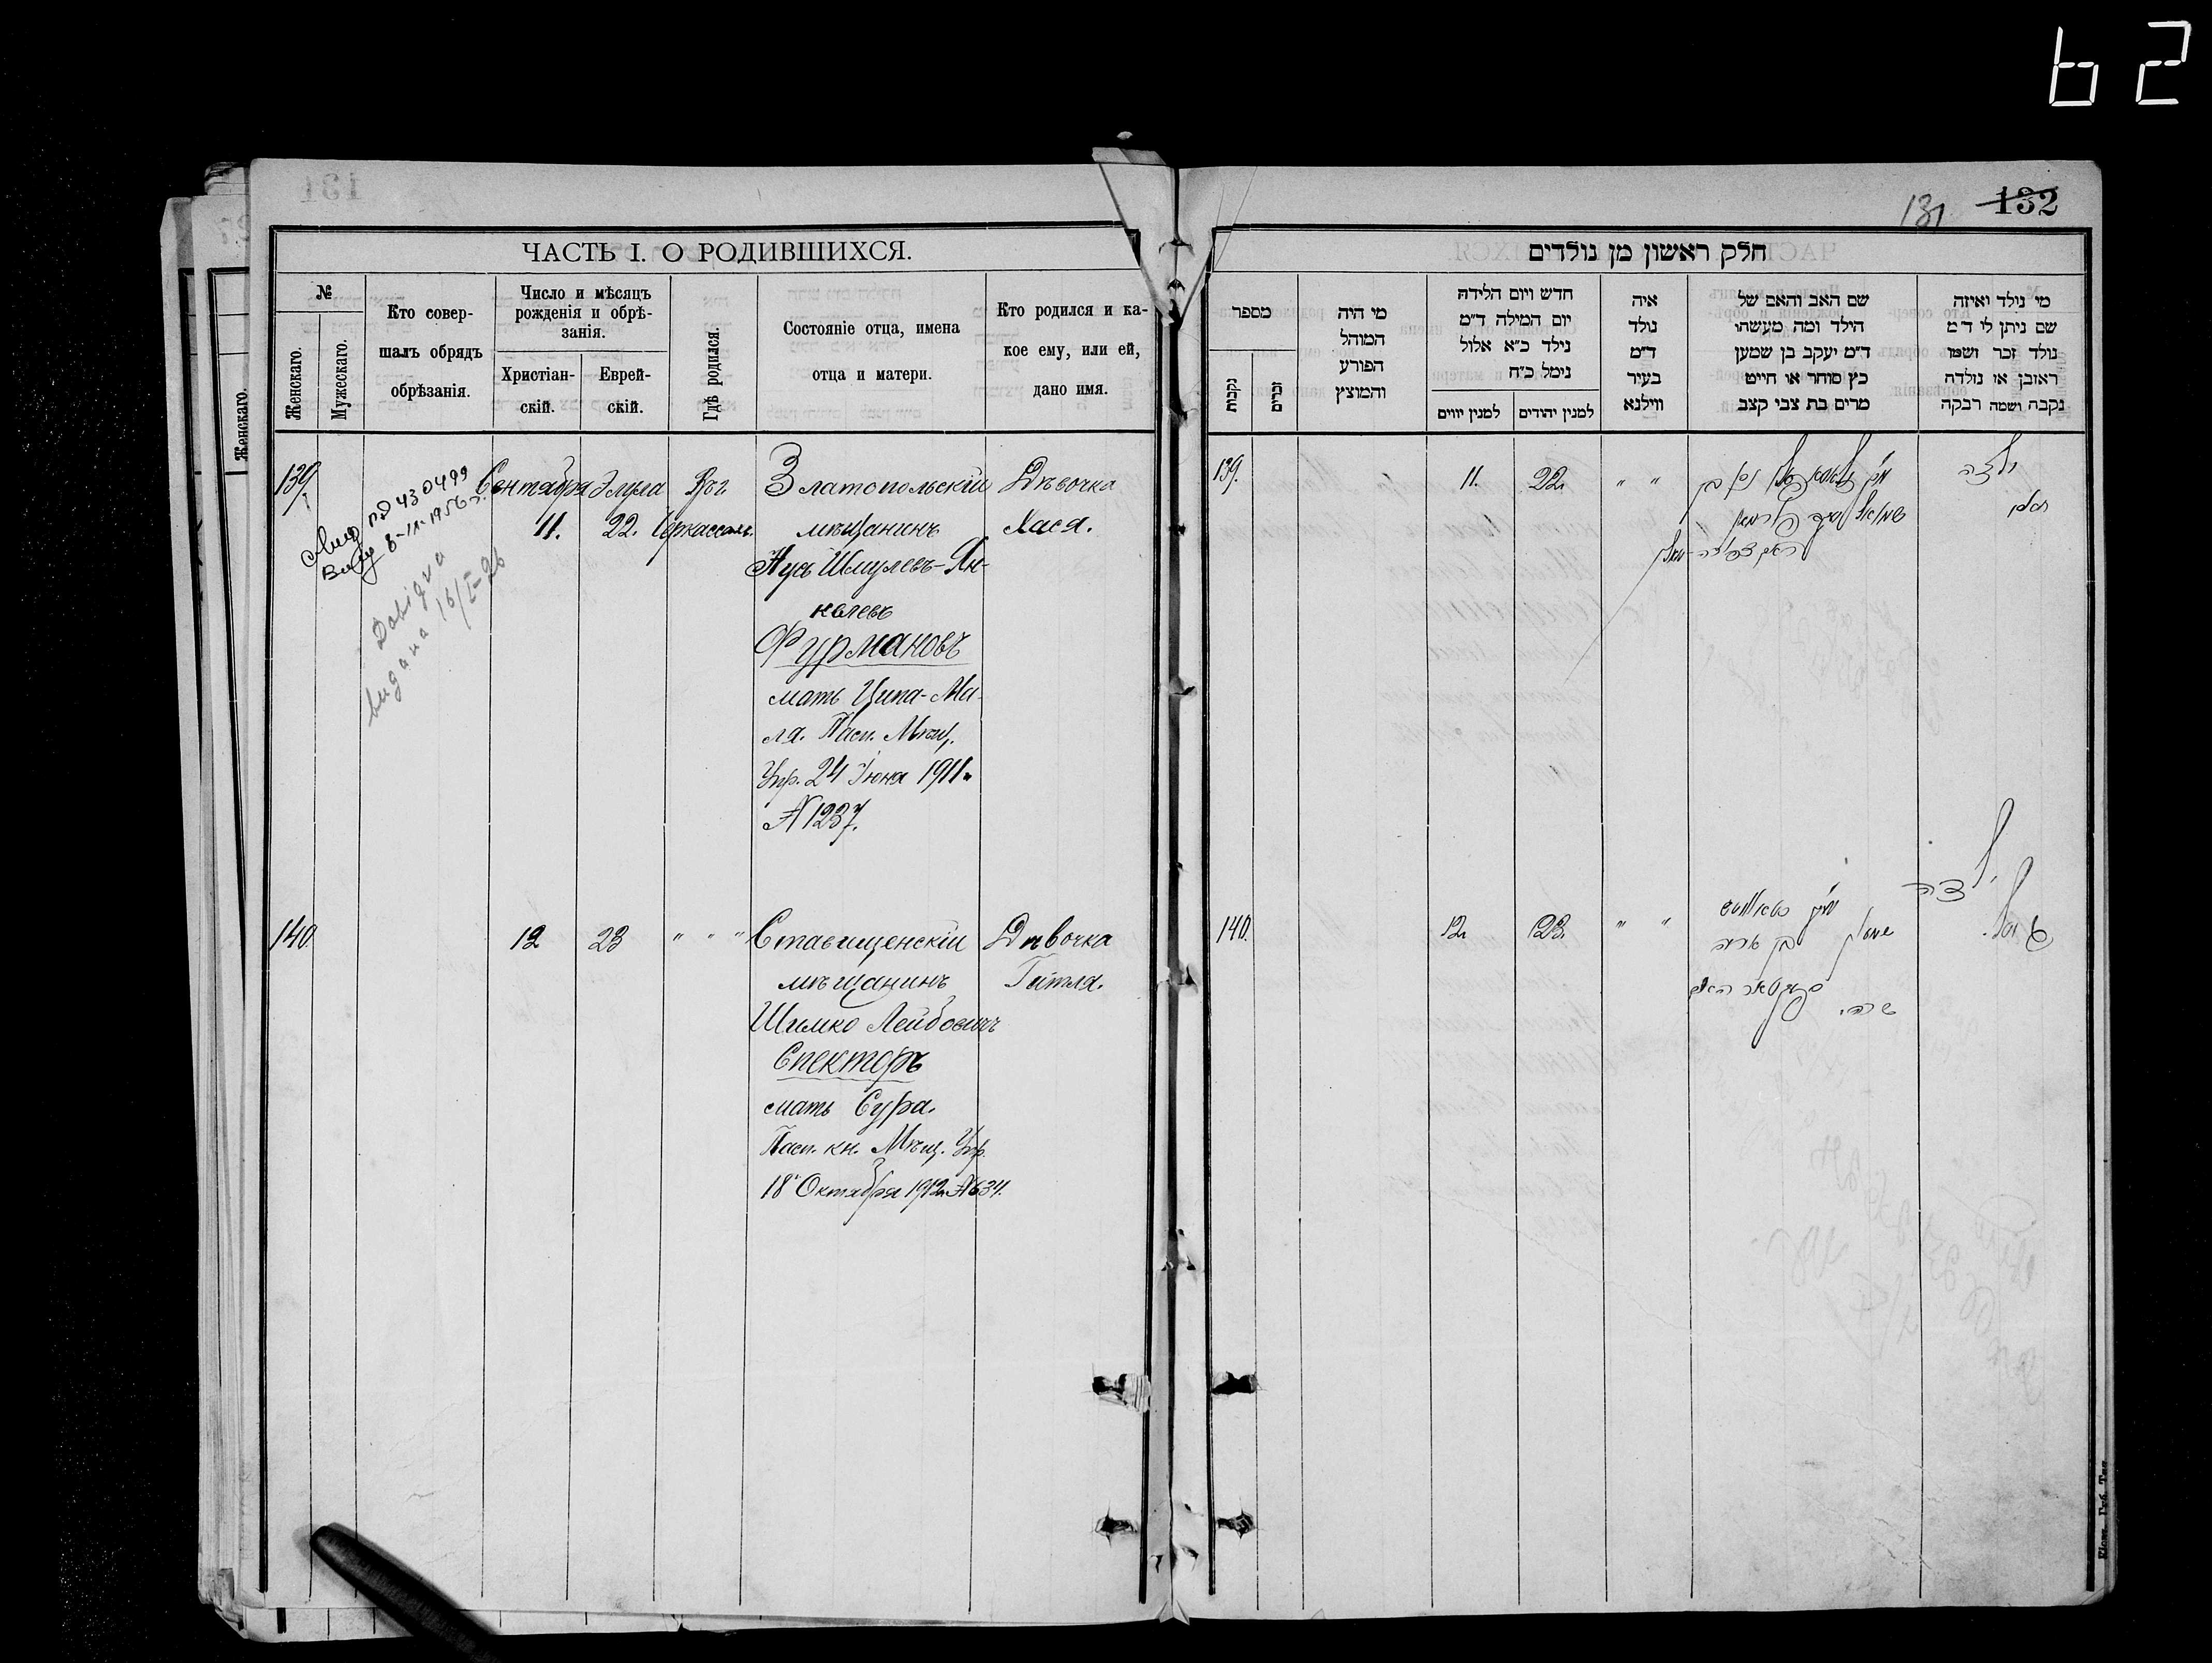 62
131 132
ЧАСТЬ I. О РОДИВШИХСЯ.
№
Женскаго.
Мужескаго.
Кто совер-
шалъ обрядъ
обрѣзанія.
Число и мѣсяцъ
рожденія и обрѣ-
занія.
Христіан-
скій.
Еврей-
скій.
Гдѣ родился.
Состояніе отца, имена
отца и матери.
Кто родился и ка-
кое ему, или ей,
дано имя.
Женскаго.
139.
430499
8-IX-1956 г.
16/I-26
Сентября Элула
11. 22. Черкассахъ.
Златопольскій
мѣщанинъ
Нусъ Шмулевъ-Ян-
келевъ
Фурмановъ
мать Ципа-Ма-
ля. Пасп. Мѣщ.
Упр. 24 Іюня 1911 г.
№ 1237.
Дѣвочка
Хася.
140.
12 23 " " "
Ставищенскій
мѣщанинъ
Шимко Лейбовичъ
Спекторъ
мать Сура.
Пасп. кн. Мѣщ. Упр.
18 Октября 1912 г. № 634.
Дѣвочка
Гитля.
חלק ראשון מן נולדים
מספר
נקבות
זכרים
מי היה
המוהל
הפורע
והמוצץ
חדש ויום הלידה
יום המילה ד״מ
נילד כ״א אלול
נימל כ״ח
למנין יווים
למנין יהודים
איה
נולד
ד״מ
בעיר
ווילנא
שם האב והאם של
הילד ומה מעשהו
ד״מ יעקב בן שמען
כץ סוחר או חייט
מרים בת צבי קצב
מי נילד ואיזה
שם ניתן לו ד״מ
נולד זכר ושמו
ראובן או נולדה
נקבה ושמה רבקה
139. 11. 22. " "
ילדה
שמואל
140. 12. 23. " "
ילדה
שמעון בן אריה
ספעקטאר האם
שרה.
גיטל.